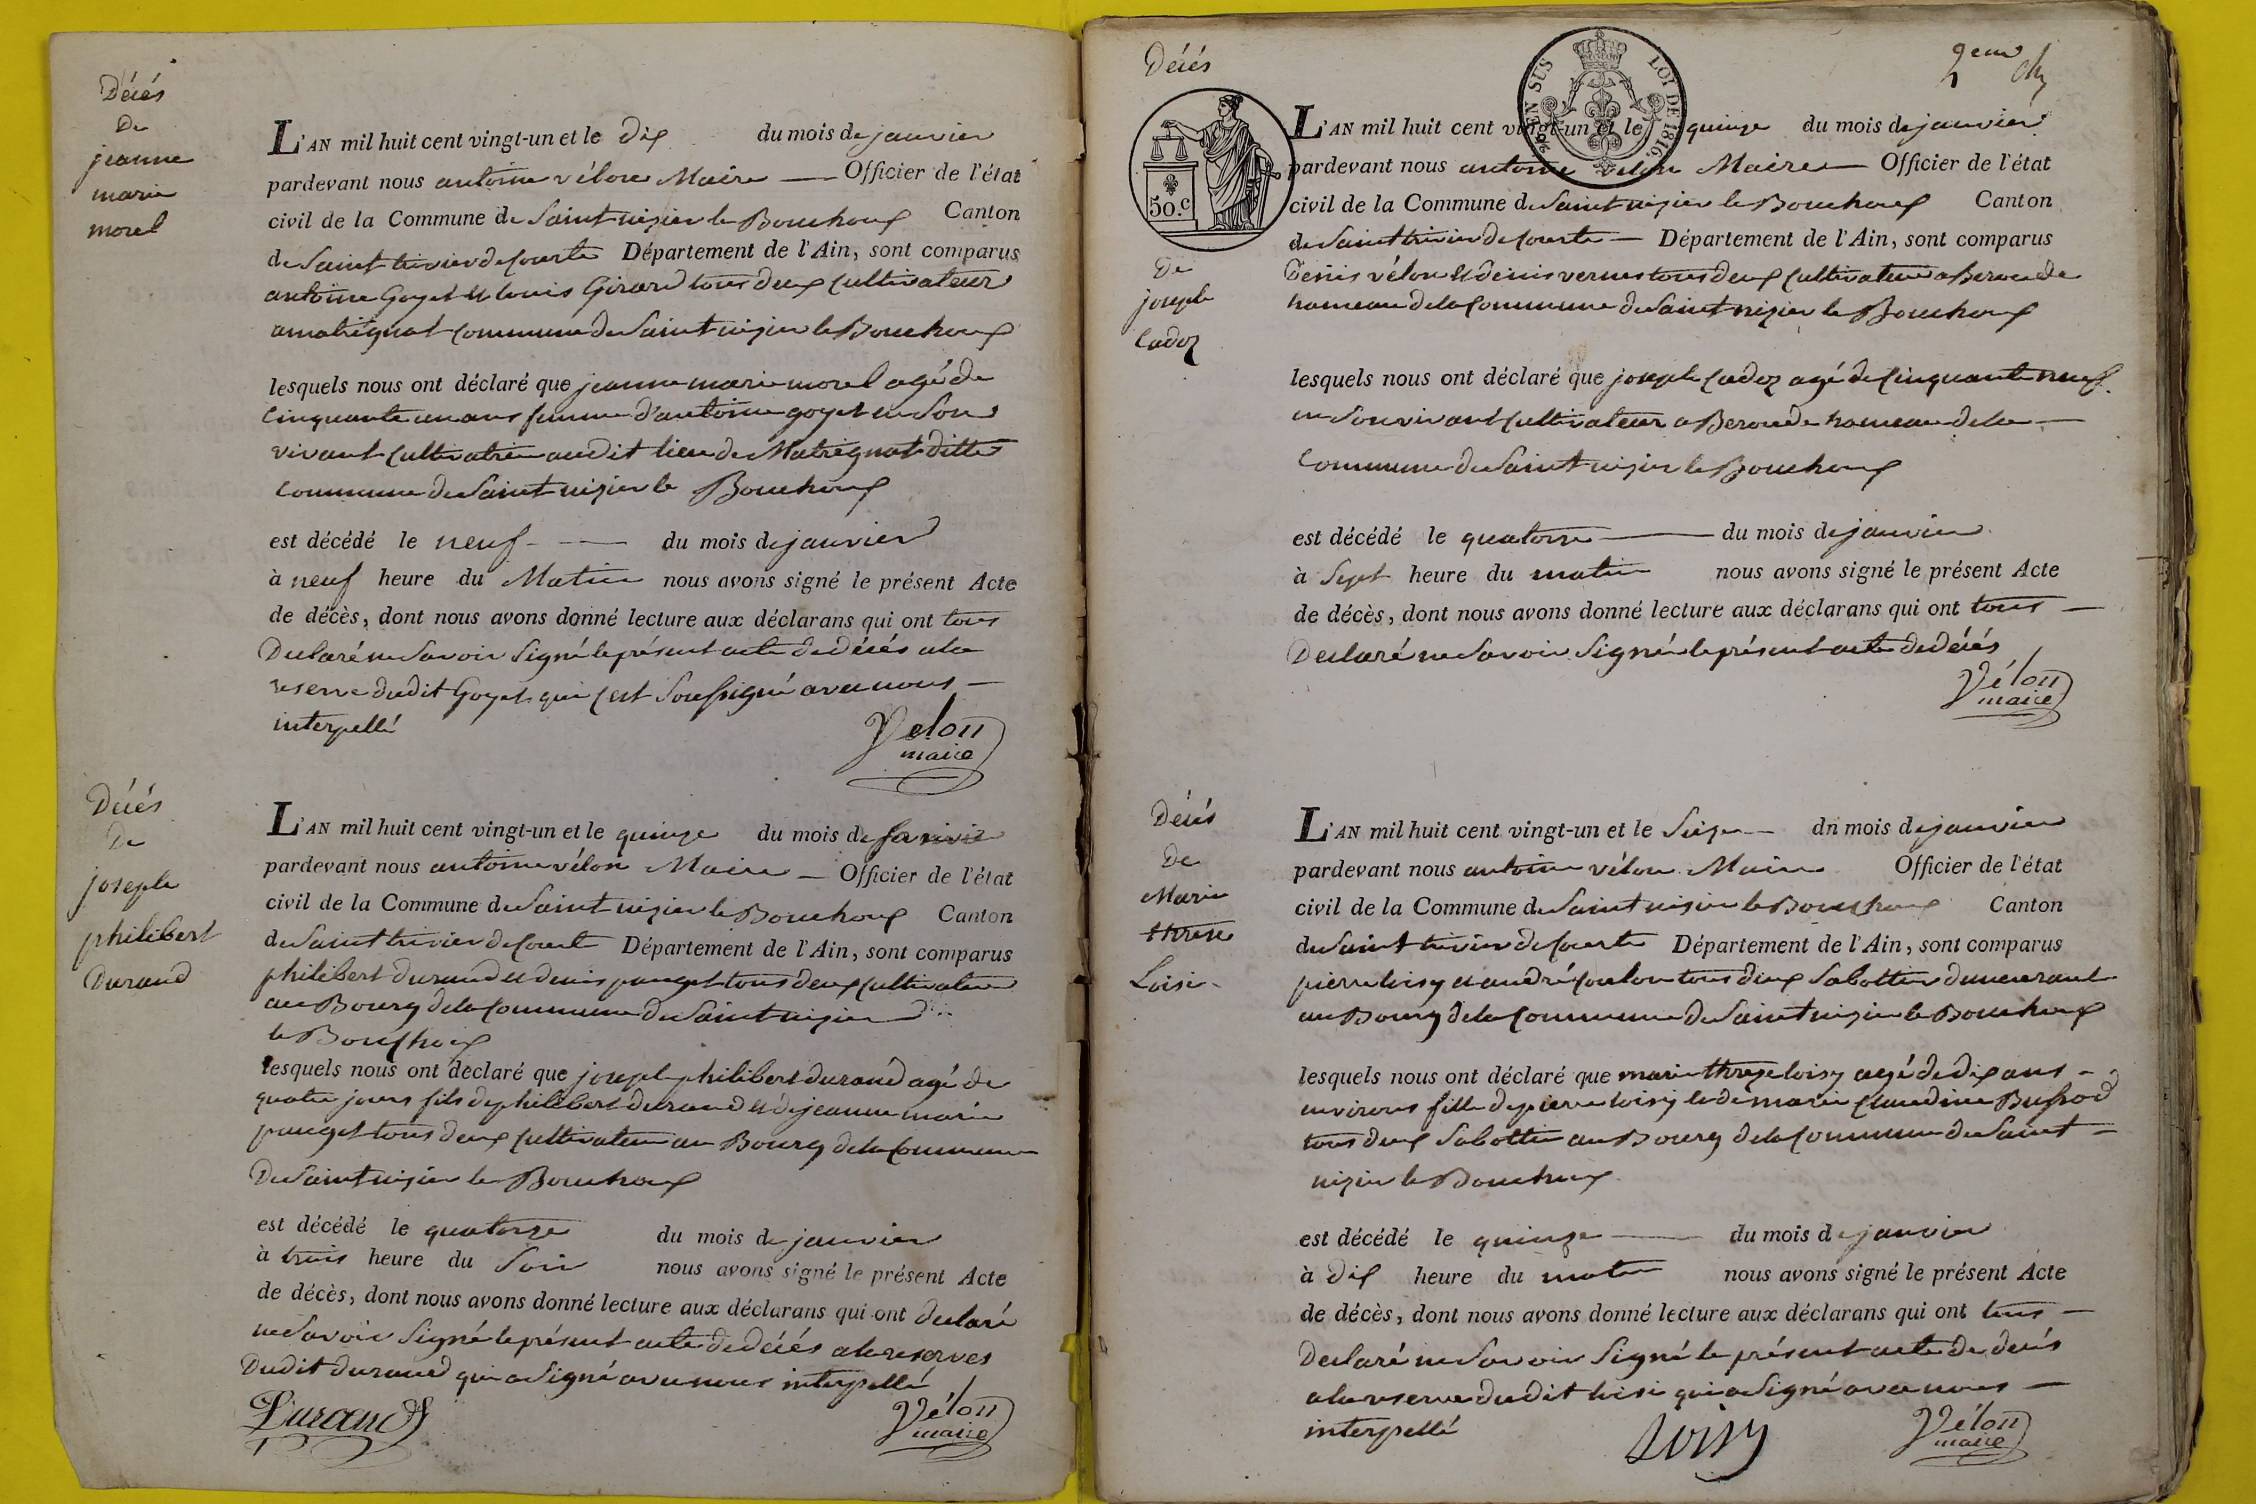 Décés
De
jeanne
marie
morel
L'AN mil huit cent vingt-un et le dix du mois de janvier
pardevant nous antoine vélon Maire — Officier de l'état
civil de la Commune de Saint nizier le Bouchoux Canton
de Saint trivier de Courte Département de l'Ain, sont comparus
antoine Goyet et louis Girard tous deux Cultivateur
a matrignat Commune de Saint nizier le Bouchoux
lesquels nous ont déclaré que jeanne marie morel agé de
Cinquante un ans femme d'antoine goyet en Son
vivant Cultivatrice au dit lieu de Matrignat ditte
Commune de Saint nizier le Bouchoux
est décédé le neuf — du mois de janvier
à neuf heure du Matin nous avons signé le présent Acte
de décès, dont nous avons donné lecture aux déclarans qui ont tous
Declaré ne Savoir Signé le présent acte de décés a la
reserve dudit Goyet qui Cest Soussigné avec nous —
interpellé
Velon
maire
Décés
De
joseph
philibert
Durand
L'AN mil huit cent vingt-un et le quinze du mois de
pardevant nous antoine vélon Maire — Officier de l'état
civil de la Commune de Saint nizier le Bouchoux Canton
de Saint trivier de Courte Département de l'Ain, sont comparus
philibert durand et denis pauget tous deux Cultivateur
au Bourg de la Commune de Saint nizier
le Bouchoux
lesquels nous ont déclaré que joseph philibert durand agé de
quatre jours fils de philibert durand et de jeanne marie
pauget tous deux Cultivateur au Bourg de la Commune
De Saint nizier le Bouchoux
est décédé le quatorze du mois de janvier
à trois heure du Soir nous avons signé le présent Acte
de décès, dont nous avons donné lecture aux déclarans qui ont declaré
ne Savoir Signé le présent acte de décés a la reserves
Dudit durand qui a Signé avec nous interpellé
Durand
Vélon
maire
Décés
2eme
50.C
EN SUS
LOI DE 1816.
De
joseph
Cadoz
L'AN mil huit cent vingt-un et le quinze du mois de janvier
pardevant nous antoine vélon Maire — Officier de l'état
civil de la Commune de Saint nizier le Bouchoux Canton
de Saint trivier de Courte — Département de l'Ain, sont comparus
Denis vélon et denis vernes tous deux Cultivateur a Beroude
hameau de la Commune de Saint nizier le Bouchoux
lesquels nous ont déclaré que joseph Cadoz agé de Cinquante neuf
en Son vivant Cultivateur a Beroude hameau de la —
Commune de Saint nizier le Bouchoux
est décédé le quatorze — du mois de janvier
à Sept heure du matin nous avons signé le présent Acte
de décès, dont nous avons donné lecture aux déclarans qui ont tous —
Declaré ne Savoir Signé le présent acte de décés
Vélon
maire
Décés
De
Marie
threse
Loisi
L'AN mil huit cent vingt-un et le Seize — dn mois de janvier
pardevant nous antoine vélon Maire Officier de l'état
civil de la Commune de Saint nizier le Bouchoux Canton
de Saint trivier de Courte Département de l'Ain, sont comparus
pierre loisy et andré Coulon tous deux Sabottier demeurant
au Bourg de la Commune de Saint nizier le Bouchoux
lesquels nous ont déclaré que marie threze loisy agé de dix ans —
environs fille de pierre loisy et de marie Claudine Buffod
tous deux Sabottier au Bourg de la Commune de Saint —
nizier le Bouchoux
est décédé le quinze — du mois de janvier
à dix heure du matin nous avons signé le présent Acte
de décès, dont nous avons donné lecture aux déclarans qui ont tous —
Declaré ne Savoir Signé le présent acte de décés
a la reserve dudit loisi qui a Signé avec nous —
interpellé
Loisy
Vélon
maire